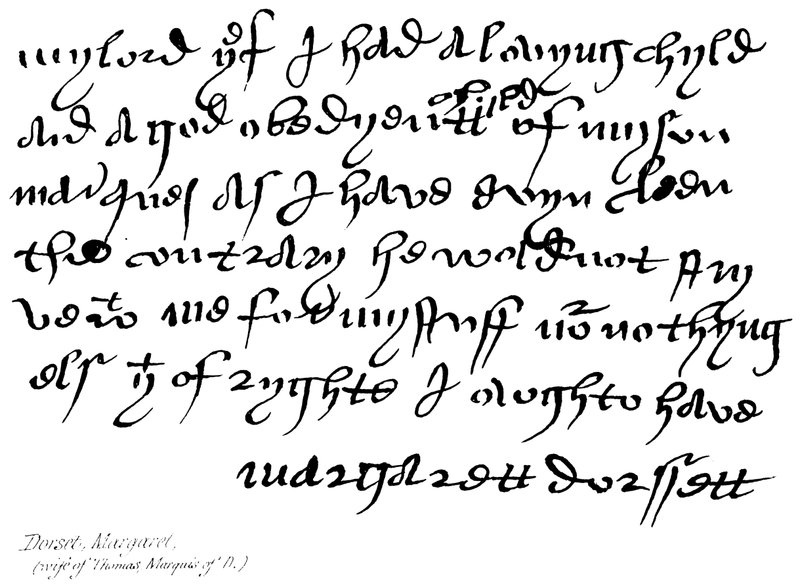 my lord yf I had a lovyng chyld
and a god obedyentt chyled of my son
marques as I have evyn been
the contrary he wold not stry
ve wt me for my stuff nor nothyng
els yt of ryghte I owght to have
margarett dorssett
Dorset, Margaret,
(wife of Thomas, Marquis of D.)